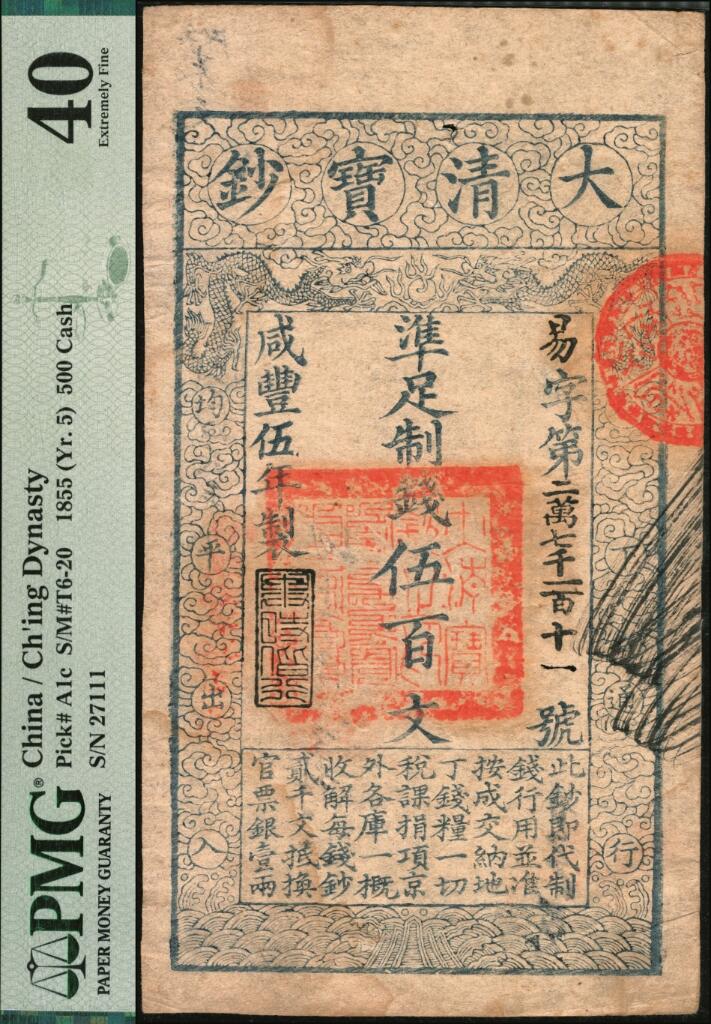 PMG®
PAPER MONEY GUARANTY
China / Ch'ing Dynasty
Pick# A1c S/M#T6-20 1855 (Yr. 5) 500 Cash
S/N 27111
40
Extremely Fine
大清寶鈔
易字第二萬七千一百十一號
準足制錢伍百文
咸豐伍年製
通行
均平出入
此鈔即代制
錢行用並准
按成交納地
丁錢糧一切
稅課捐項京
外各庫一概
收解每錢鈔
貳千文抵換
官票銀壹兩